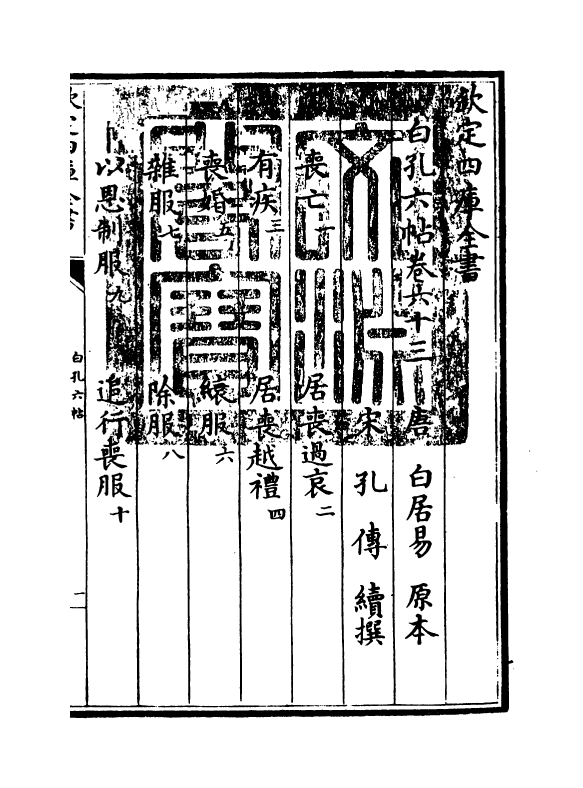 欽定四庫全書
白孔六帖卷六十三 唐 白居易 原本
宋 孔傳 續撰
喪亡一 居喪過哀二
有疾三 居喪越禮四
喪婚五 縗服六
雜服七 除服八
以恩制服九 追行喪服十
欽定四庫全書
白孔六帖
二
文淵閣寶